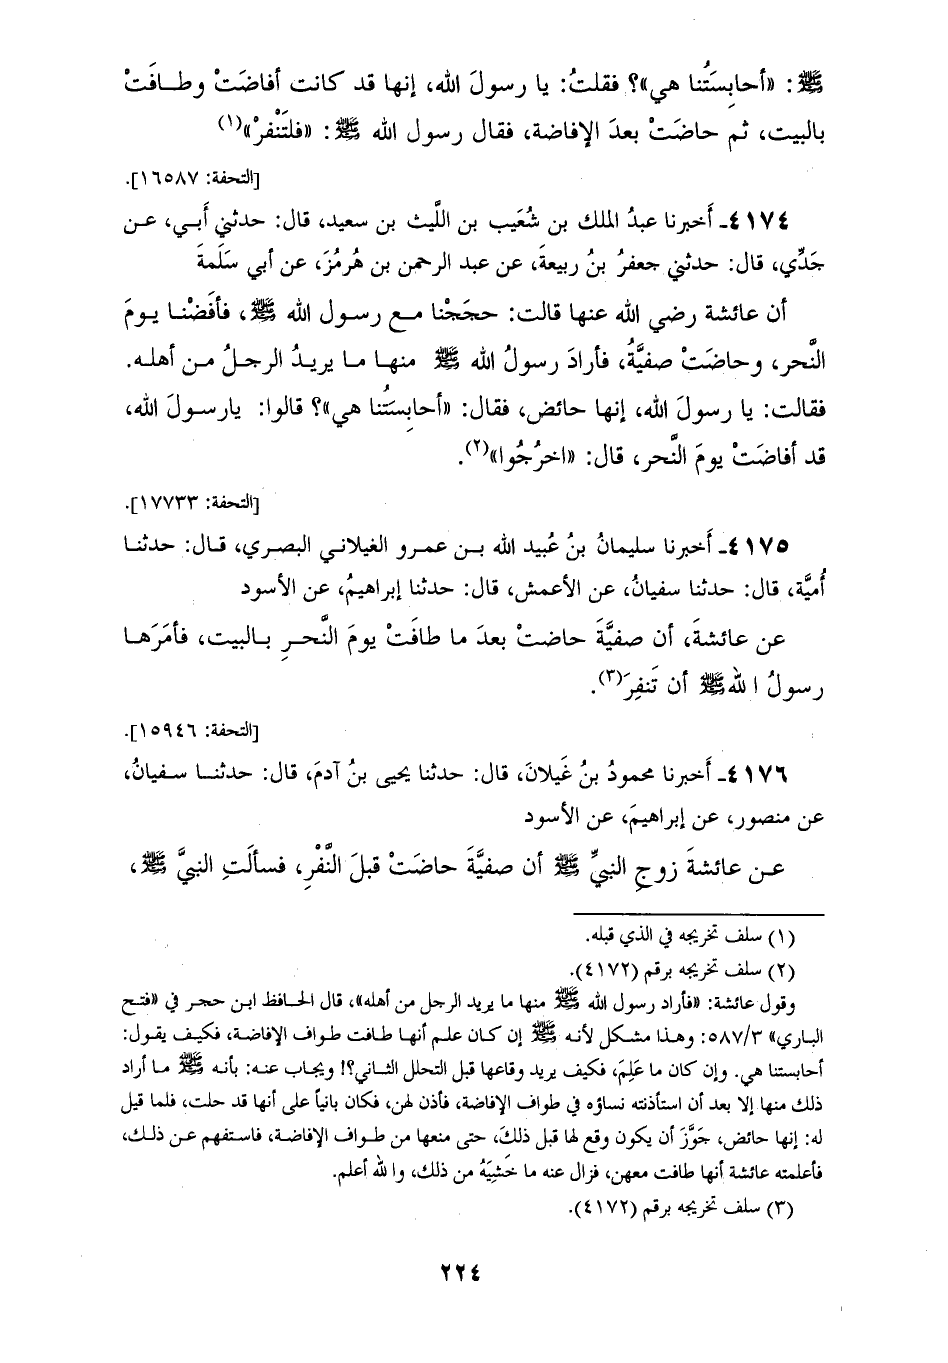 ﷺ: «أحابِسَتُنا هي»؟ فقلتُ: يا رسولَ الله، إنها قد كانت أفاضَتْ وطـافَتْ
بالبيت، ثم حاضَتْ بعدَ الإفاضة، فقال رسول الله ﷺ: «فلتَنْفِرْ»(١)
[التحفة: ١٦٥٨٧].
٤١٧٤ـ أَخبرنا عبدُ الملك بن شُعَيب بن اللَّيث بن سعيد، قال: حدثني أَبي، عـن
جَدِّي، قال: حدثني جعفرُ بنُ ربيعةَ، عن عبد الرحمن بن هُرمُزَ، عن أبي سَلَمةَ
أن عائشة رضي الله عنها قالت: حجَجْنا مـع رسـول الله ﷺ، فأفَضْنـا يـومَ
النَّحر، وحاضَتْ صفيَّةُ، فأرادَ رسولُ الله ﷺ منهـا مـا يريـدُ الرجـلُ مـن أهلـه.
فقالت: يا رسولَ الله، إنها حائض، فقال: «أحابِستُنا هي»؟ قالوا: يارسـولَ الله،
قد أفاضَتْ يومَ النَّحر، قال: «اخرُجُوا»(٢).
[التحفة: ١٧٧٣٣].
٤١٧٥ـ أَخبرنا سليمانُ بنُ عُبيد الله بـن عمرو الغيلاني البصري، قـال: حدثنـا
أُميَّة، قال: حدثنا سفيانُ، عن الأعمش، قال: حدثنا إبراهيمُ، عن الأسود
عن عائشةَ، أن صفيَّةَ حاضتْ بعدَ ما طافَتْ يومَ النَّحـرِ بـالبيت، فأمَرَهـا
رسولُ الله ﷺ أن تَنفِرَ(٣).
[التحفة: ١٥٩٤٦].
٤١٧٦ـ أَخبرنا محمودُ بنُ غَيلانَ، قال: حدثنا يحيى بنُ آدمَ، قال: حدثنـا سـفيانُ،
عن منصور، عن إبراهيمَ، عن الأسود
عـن عائشةَ زوجِ النبيِّ ﷺ أن صفيَّةَ حاضَتْ قبلَ النَّفْرِ، فسألَتِ النبيَّ ﷺ،
(١) سلف تخريجه في الذي قبله.
(٢) سلف تخريجه برقم (٤١٧٢).
وقول عائشة: «فأراد رسول الله ﷺ منها ما يريد الرجل من أهله»، قال الحـافظ ابـن حجـر في «فتـح
الباري» ٥٨٧/٣: وهـذا مشـكل لأنـه ﷺ إن كـان علـم أنهـا طـافت طـواف الإفاضـة، فكيـف يقـول:
أحابستنا هي. وإن كان ما عَلِمَ، فكيف يريد وقاعها قبل التحلل الثاني؟! ويجاب عنـه: بأنـه ﷺ مـا أراد
ذلك منها إلا بعد أن استأذنته نساؤه في طواف الإفاضة، فأذن لهن، فكان بانياً على أنها قد حلت، فلما قيل
له: إنها حائض، جَوَّزَ أن يكون وقع لها قبل ذلكَ، حتى منعها من طـواف الإفاضـة، فاستفهم عـن ذلـك،
فأعلمته عائشة أنها طافت معهن، فزال عنه ما خَشِيَهُ من ذلك، والله أعلم.
(٣) سلف تخريجه برقم (٤١٧٢).
٢٢٤